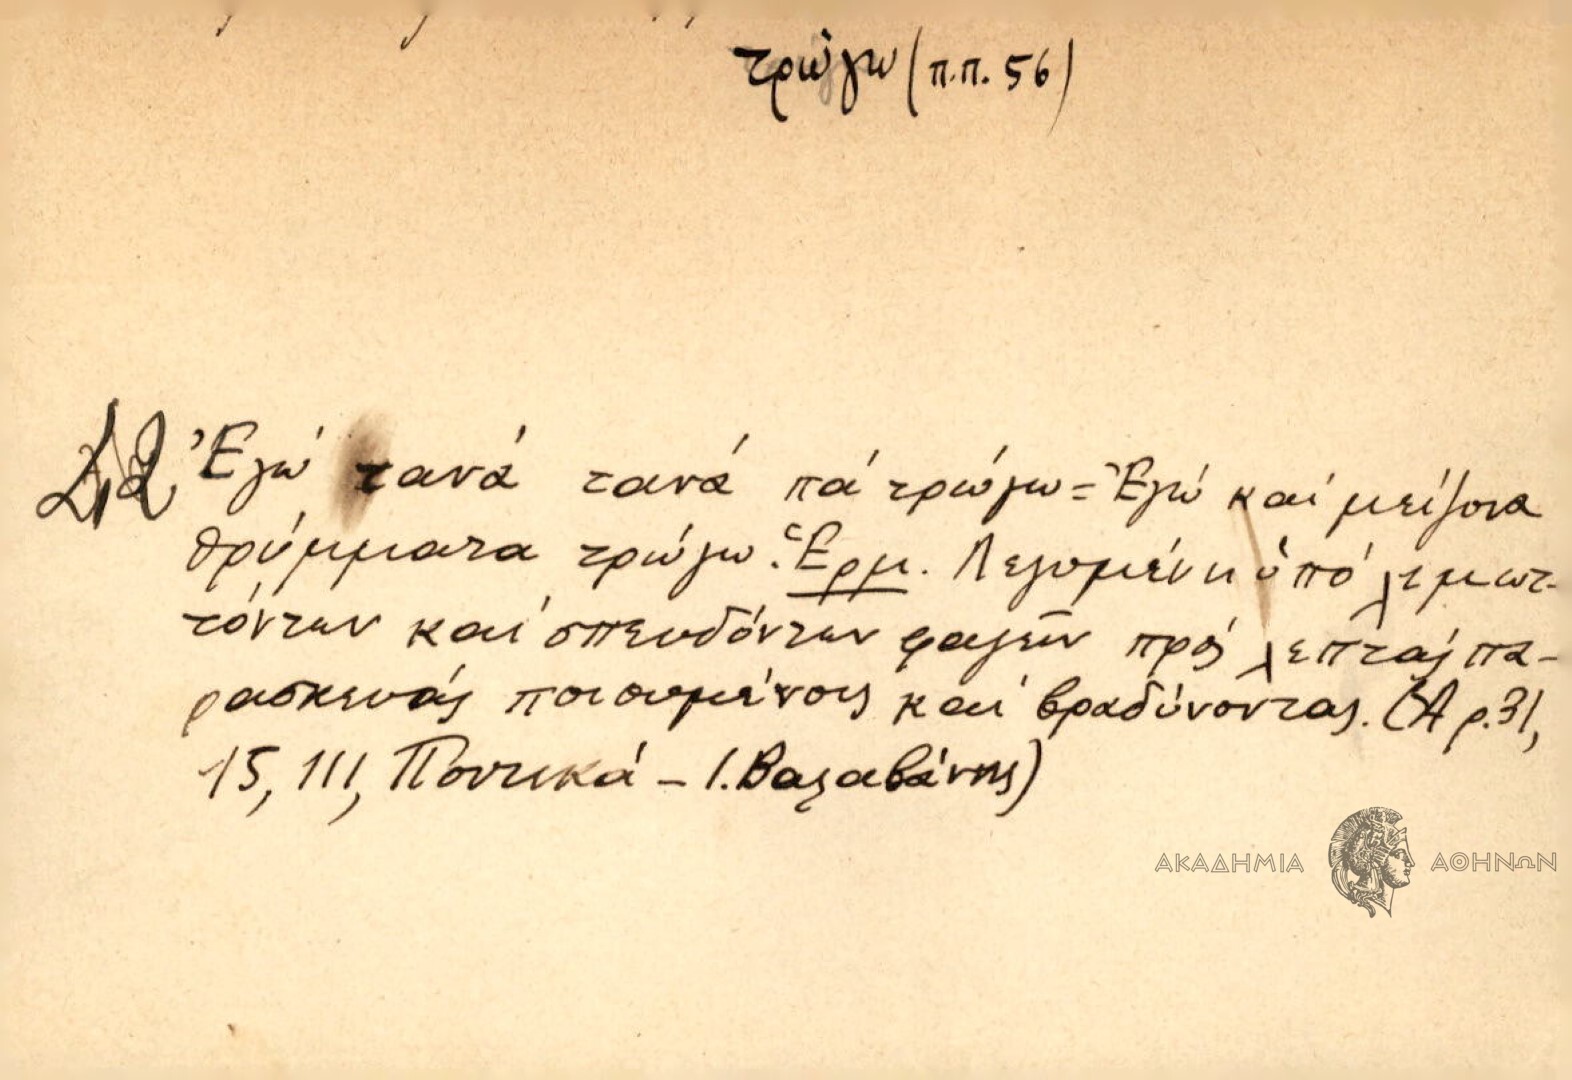 τρώγω (π.π. 56)
Ἐγώ τανά τανά πά τρώγω = Ἐγώ καί μείζονα
θρύμματα τρώγω. Ἑρμ. Λεγομένη ὑπό λιμωτ-
τόντων καί σπευδόντων φαγεῖν πρός λεπτάς πα-
ρασκευάς ποιουμένους καί βραδύνοντας. (Ἀρ. 31,
15, 111, Ποντικά - Ι. Βαλαβάνης)
ΑΚΑΔΗΜΙΑ ΑΘΗΝΩΝ